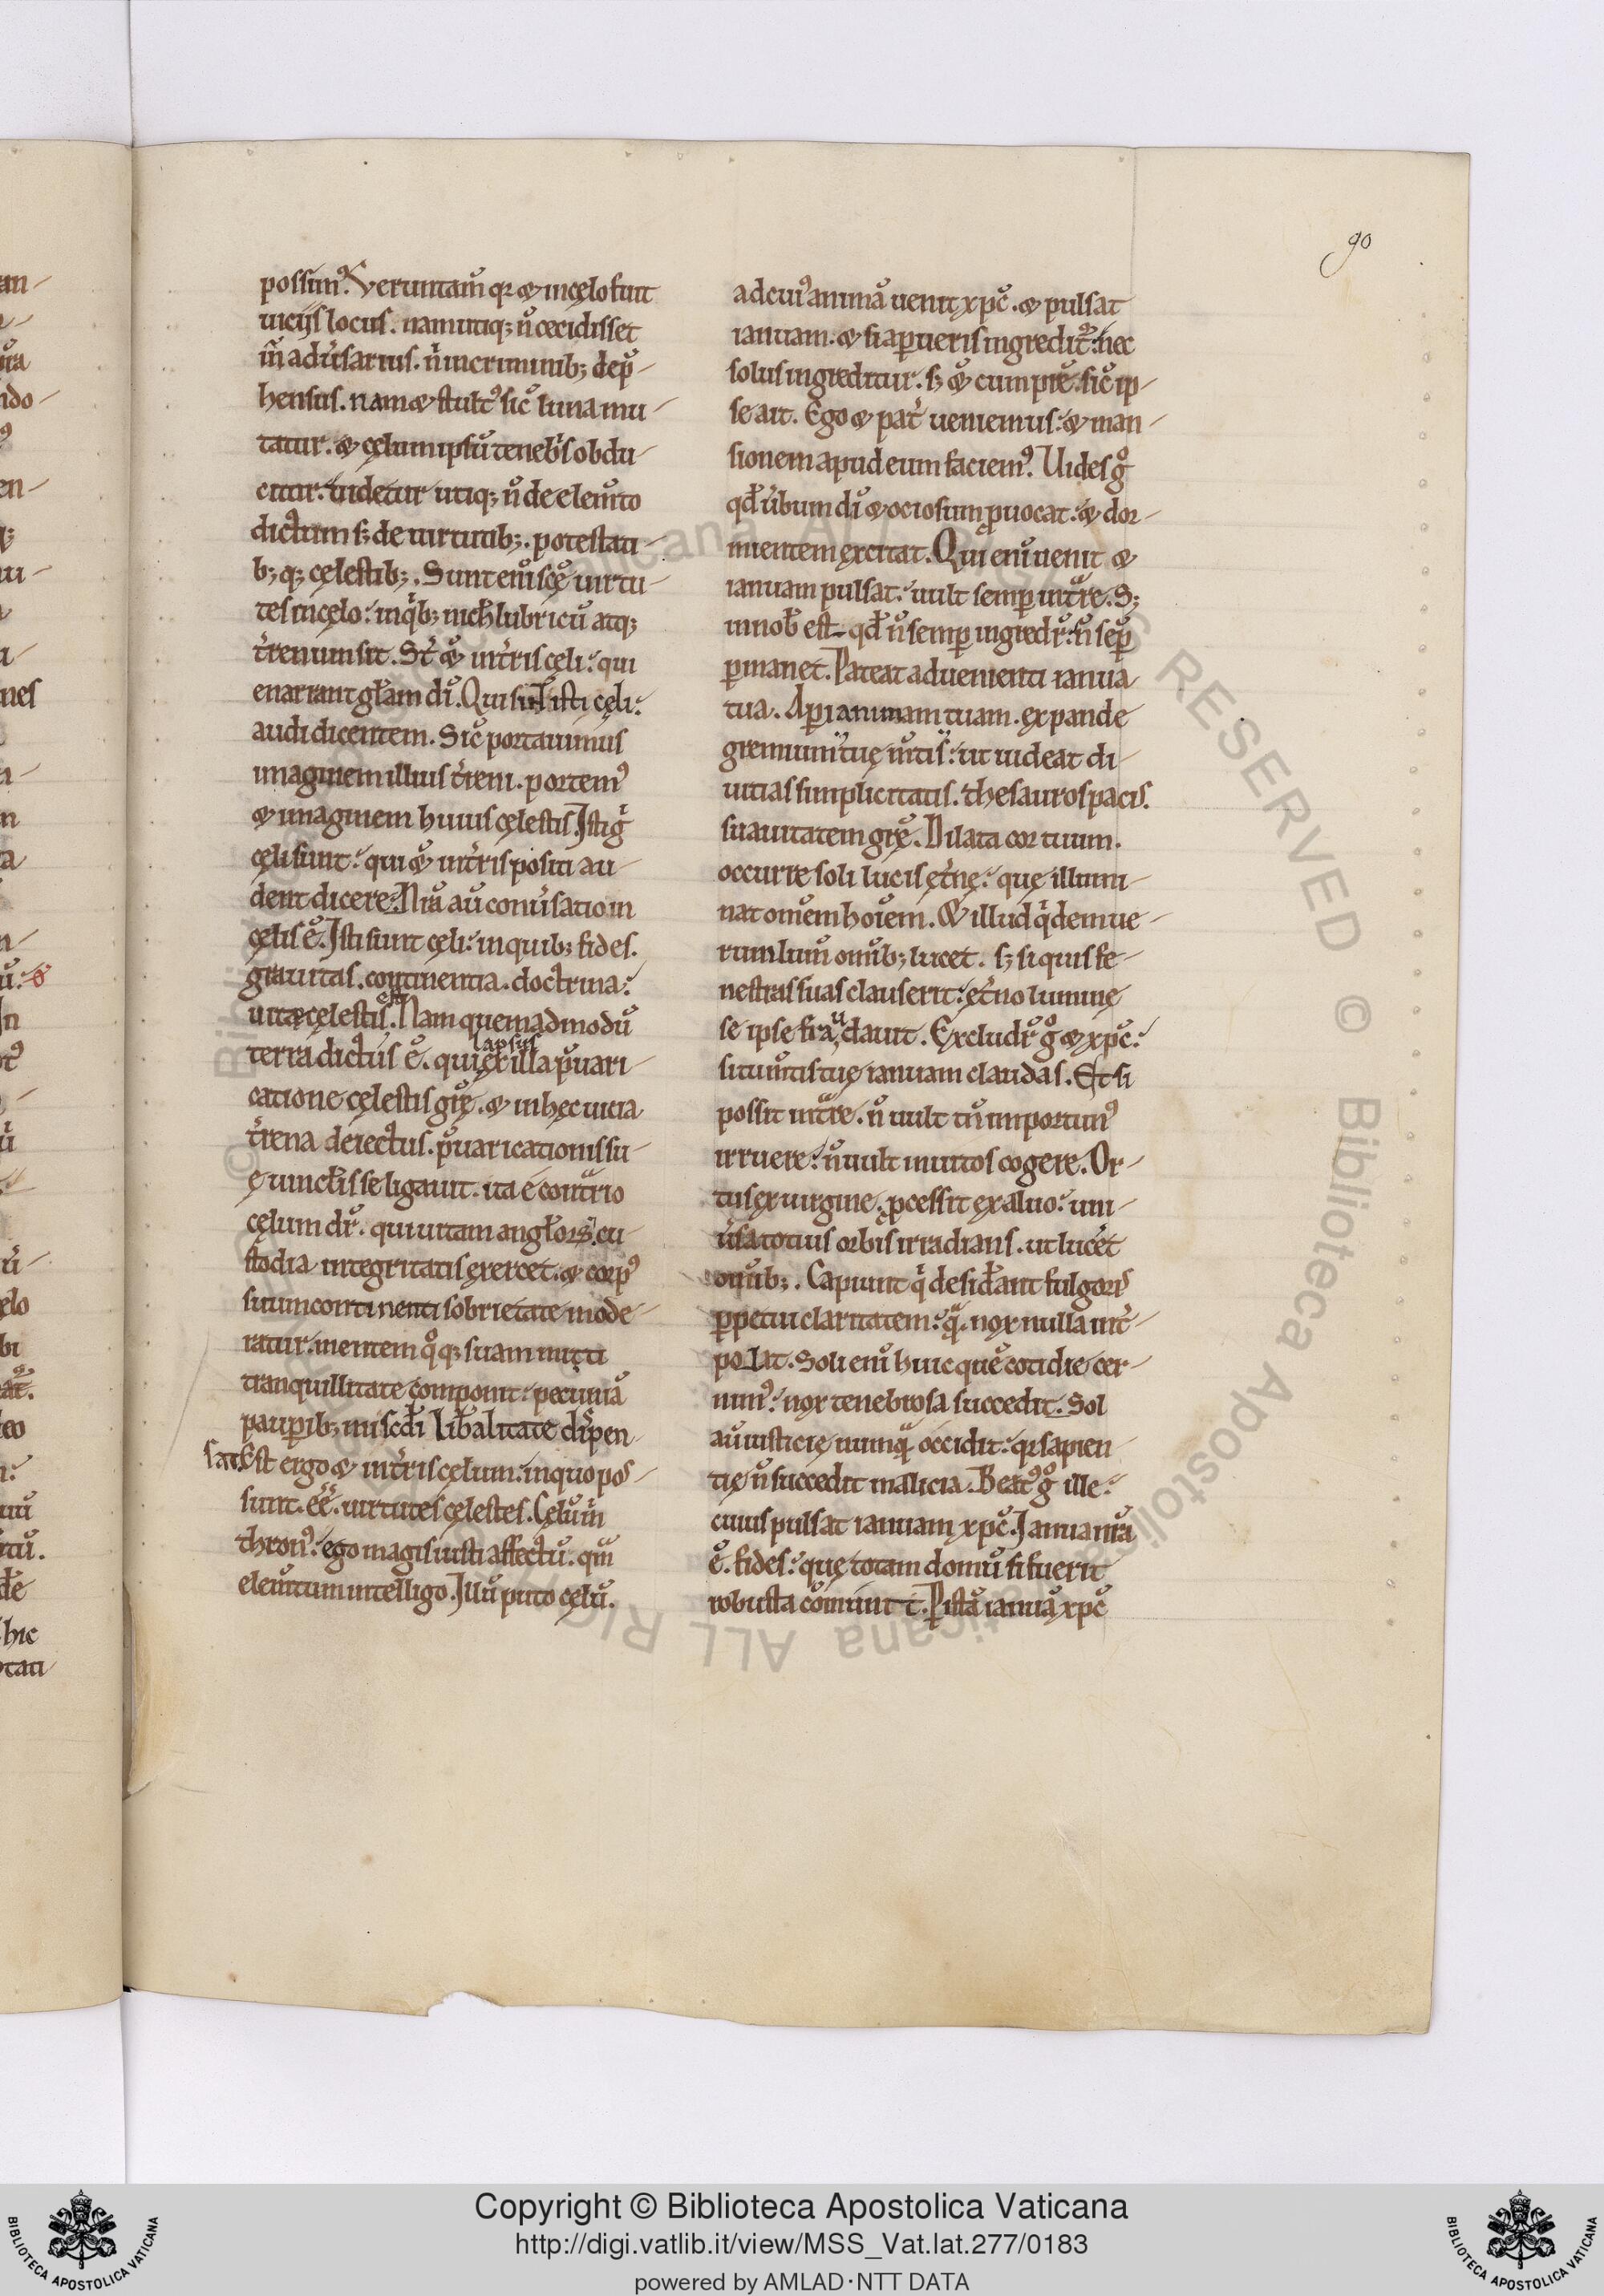 90
possim᷒. Veruntam̄ qꝛ ⁊ incęlo fuit
uicijs locus. nam utiq; n̄ cecidisset
in̄ adu̾sarius. n̄ incriminib; dep̄-
hensus. nam ⁊ stult᷒ sic̄ luna mu-
tatur. ⁊ cęlum ipsū teneb̾s obdu-
citur. uidetur utiq; n̄ de elem̄to
dictum sꝫ de uirtutib;. potestati-
b; q; cęlestib;. Sunt eni̅ sc̄ę uirtu-
tes incęlo: inq̇b; nichͪ lubricū atq;
t̾renum sit. St̾ ⁊ int̾ris cęli: qui
enarrant gl̄am di̅. Qui sint isti cęli:
audi dicentem. Sic̄ portauimus
imaginem illius t̾reni. portem᷒
⁊ imaginem huius cęlestis. Isti g̾
cęli sunt: qui ⁊ int̾ris positi au-
dent dicere: Nr̄a au̅ conu̾satio in
cęlis ē. Isti sunt cęli: in quib; fides.
grauitas. continentia. doctrina:
uitæ cęlestis est. Nam quemadmodū
terra dictus ē. qui lapsus ex illa p̄uari-
catione cęlestis gr̄ę. ⁊ in hęc uicia
t̾rena deiectus. p̄uaricationis su-
ę uinct̾is se ligauit. ita e contr̄io
cęlum dr̄. qui uitam angl̄oꝝ. cu-
stodia integritatis exercet. ⁊ corp᷒
suum continenti sobrietate mode-
ratur. mentem q°q; suam miti
tranquillitate componit: pecuniā
paup̄ib; misc̄di lib̄alitate dispen-
sat. Est ergo ⁊ int̾ris cęlum: in quo pos-
sunt. ēē. uirtutes cęlestes. Cęlū in̄
thron᷒: ego magis iusti affectū. qm̄
elem̄tum intelligo. Illū puto cęlū.
ad cui᷒ animā uenit xpc̄. ⁊ pulsat
ianuam. ⁊ si ap̄ueris ingredit᷒: nec
solus ingreditur. sꝫ ⁊ cum pr̄e. sic̄ ip-
se ait. Ego ⁊ pat̾ ueniemus: ⁊ man-
sionem apud eum faciem᷒. Uides g°
qd̄ u̾bum di̅ ⁊ ociosum ꝓuocat: ⁊ dor-
mientem excitat. Qui eni̅ uenit ⁊
ianuam pulsat: uult semꝑ intr̄e. S;
in nob̄ est qd̄ n̄ semꝑ ingredr̄: n̄ sep̄
ꝑmanet. Pateat aduenienti ianua
tua. Aꝑi animam tuam. expande
gremium tuę m̄tis: ut uideat di-
uitias simplicitatis. thesauros pacis.
suauitatem gr̄ę. Dilata cor tuum.
occurre soli lucis ęt̾nę: quę illumi-
nat om̄em hoi̅em. ⁊ illud q̇dem ue-
rum lum̄ om̄ib; lucet. sꝫ siquis fe-
nestras suas clauserit: ęt̾no lumine
se ipse fraudauit. Excludr̄ g° ⁊ xpc̄:
si tu m̄tis tuę ianuam claudas. Et si
possit intr̄e. n̄ uult tn̄ inportun᷒
irruere: n̄ uult inuitos cogere. Or-
tus ex uirgine. ꝓcessit ex aluo: uni-
u̾sa totius orbis irradians. ut lucet
om̄ib;. Capiunt q̇ desid̾ant fulgoris
ꝑpetui claritatem: q̄. nox nulla int̾-
polat. Soli eni̅ huic quē cotidie cer-
nim᷒: nox tenebrosa succedit. Sol
au̅ iusticię numq̄ occidit: qꝛ sapien-
tię n̄ succedit malicia. Beat᷒ g° ille:
cuius pulsat ianuam xpc̄. Ianua nr̄a
ē. fides: quę totam domū si fuerit
robusta cōmunit. P̄ istā ianuā xpc̄
Copyright © Biblioteca Apostolica Vaticana
http://digi.vatlib.it/view/MSS_Vat.lat.277/0183
powered by AMLAD·NTT DATA